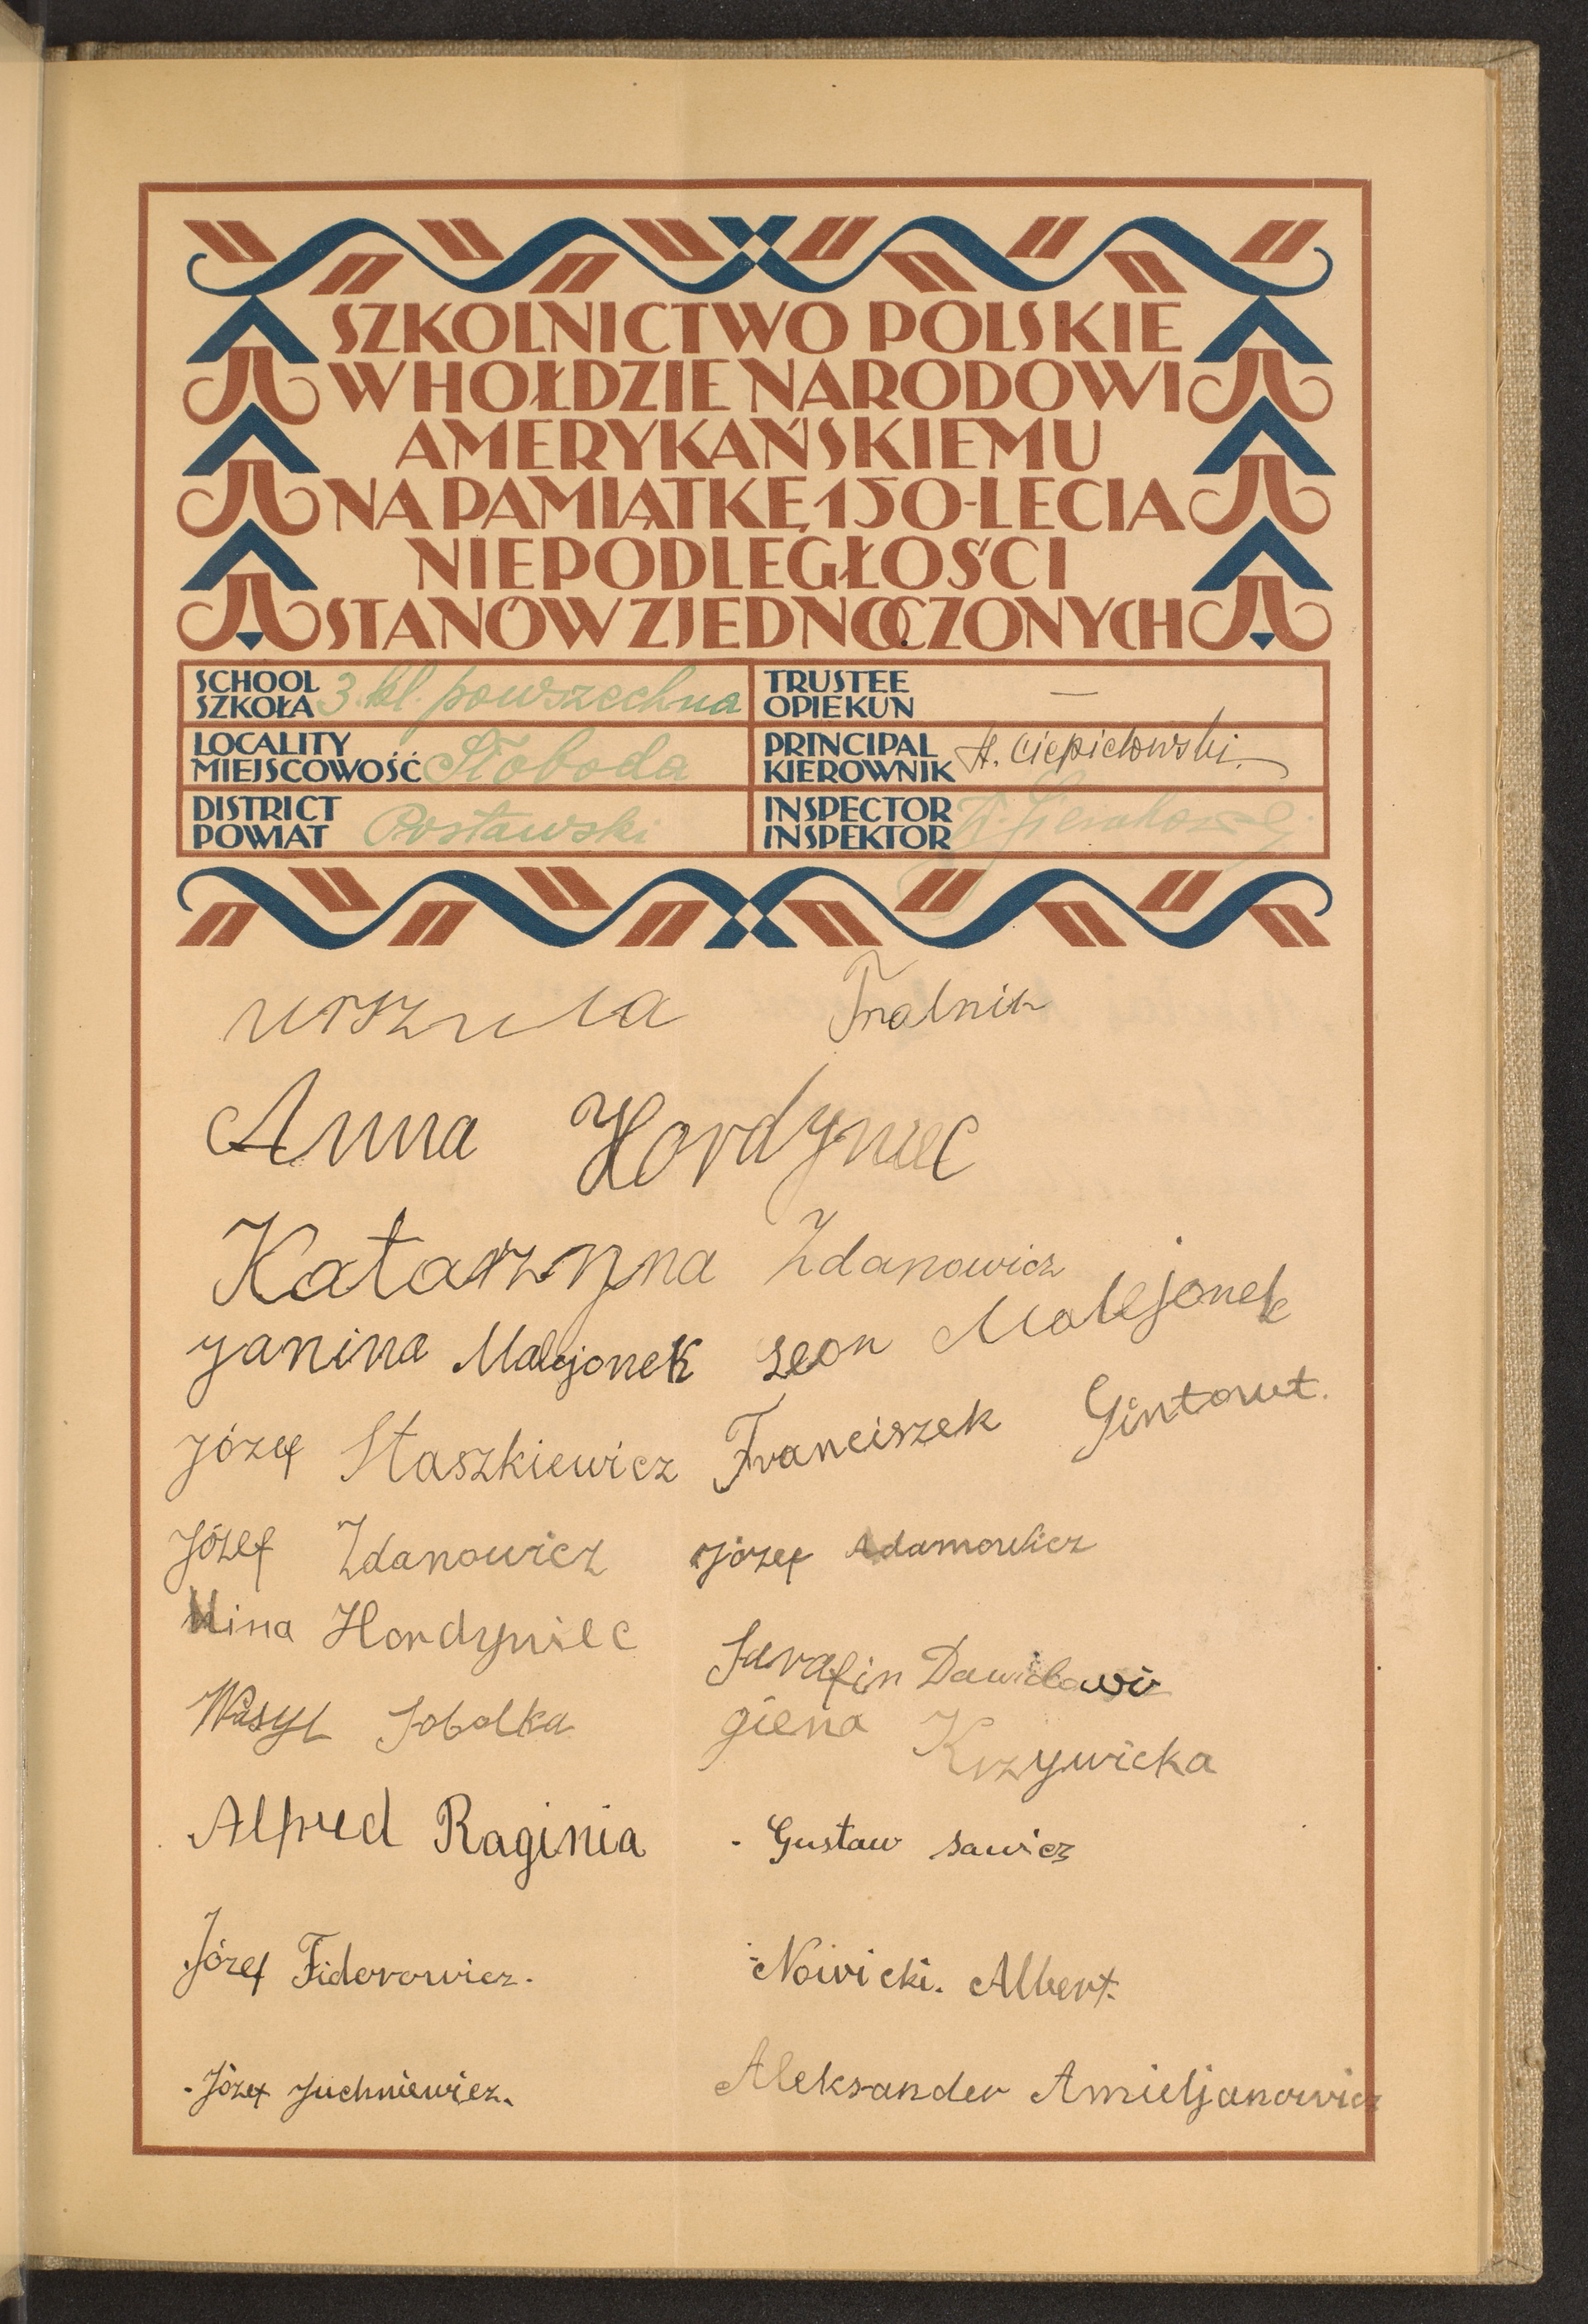 SZKOLNICTWO POLSKIE
W HOŁDZIE NARODOWI
AMERYKAŃSKIEMU
NA PAMIĄTKĘ 150-LECIA
NIEPODLEGŁOŚCI
STANÓW ZJEDNOCZONYCH
SCHOOL SZKOŁA 3. kl. powszechna
TRUSTEE OPIEKUN —
LOCALITY MIEJSCOWOŚĆ Słoboda
PRINCIPAL KIEROWNIK A. Ciepielowski.
DISTRICT POWIAT Postawski
INSPECTOR INSPEKTOR
Urszula
Anna Hordyniec
Katarzyna Zdanowicz
Janina Malejonek Leon Malejonek
Józef Staszkiewicz Franciszek Gintowt.
Józef Zdanowicz Józef Adamowicz
Nina Hordyniec
Sarafin Dawidowi
Wasyl Sobolka
giena Krzywicka
Alfred Raginia Gustaw Sawicz
Józef Fiderowicz. Nowicki. Albert.
Józef Juchniewicz. Aleksander Amieljanowicz